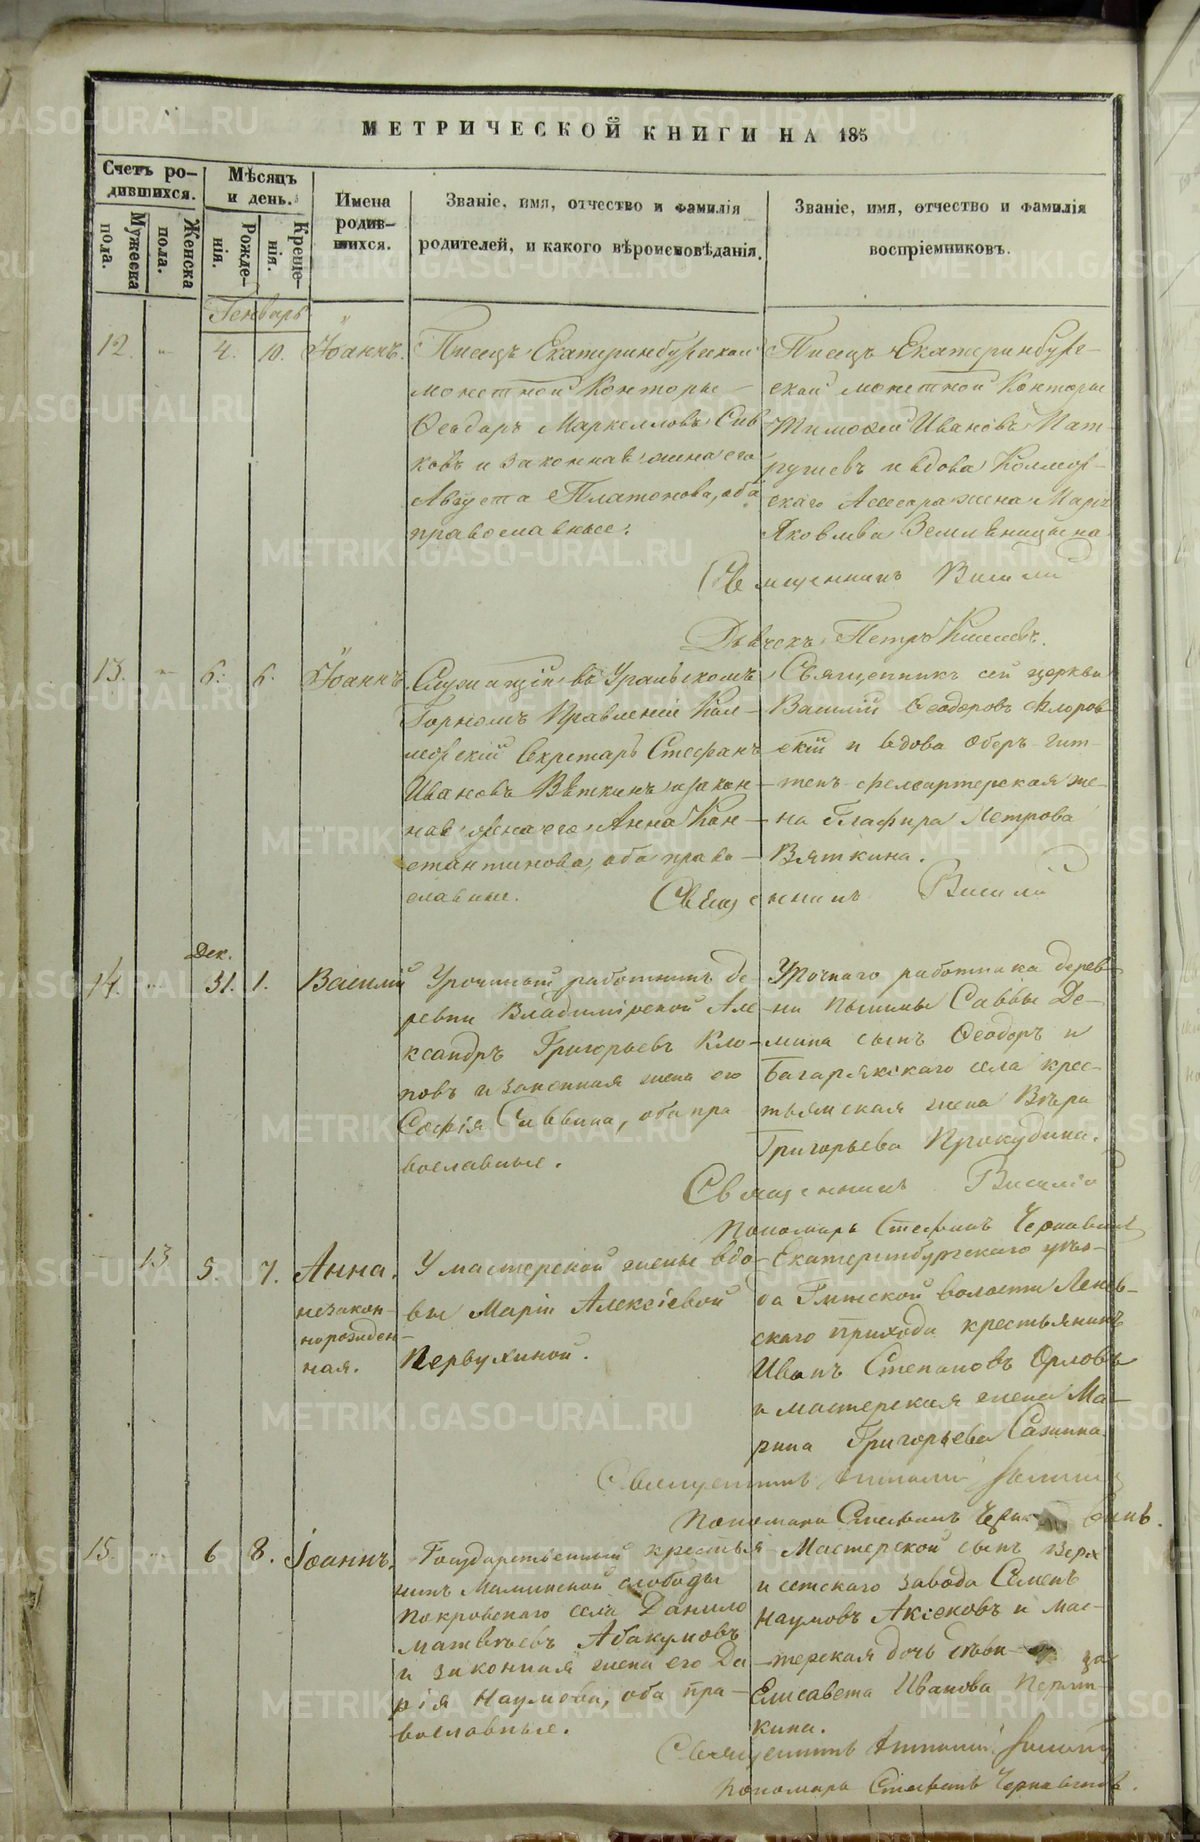 МЕТРИЧЕСКОЙ КНИГИ НА 185
Счетъ ро-
дившихся.
Мѣсяцъ
и день.
Имена
родив-
шихся.
Званіе, имя, отчество и фамилія
родителей, и какого вѣроисповѣданія.
Званіе, имя, отчество и фамилія
воспріемниковъ.
Мужеска
пола.
Женска
пола.
Рожде-
нія.
Креще-
нія.
Генварь
12. 4. 10. Іоаннъ.
Писецъ Екатеринбургской
монетной Конторы
Ѳеодоръ Маркелловъ Сив
ковъ и законная жена его
Августа Платонова, оба
православные.
Писецъ Екатеринбург-
ской монетной Конторы
Тимоѳей Ивановъ Пат-
рушевъ и вдова Коллеж-
скаго Ассесора жена
Яковлева
Священникъ Василій
Дьячекъ Петръ
13. 6. 6. Іоаннъ.
Служащій въ Уральскомъ
Горномъ Правленіи Кол-
лежскій Секретарь Стефанъ
Ивановъ Вяткинъ и закон-
ная жена его Анна Кон-
стантинова, оба право-
славные.
Священникъ сей церкви
Василій Ѳеодоровъ Флоров
скій и вдова Оберъ-гит-
тенъ-фервартерская же-
на Глафира Петрова
Вяткина.
Священникъ Василій
Дек.
14. 31. 1. Василій
Урочный работникъ де
ревни Владимірской Але
ксандръ Григорьевъ Кло-
повъ и законная жена его
Софія Саввина, оба пра
вославные.
Урочнаго работника дерев-
ни Пышмы Саввы Де-
мина сынъ Ѳеодоръ и
Багарякскаго села крес-
тьянская жена Вѣра
Григорьева Прокудина.
Священникъ Василій
Пономарь Стефанъ Чернавинъ
13 5. 7. Анна.
незакон-
норожден-
ная.
У мастерской жены вдо-
вы Маріи Алексіевой
Первухиной.
Екатеринбургскаго уѣз-
да волости
скаго прихода крестьянинъ
Иванъ Степановъ Орловъ
и мастерская жена Ма-
рина Григорьева Сазнина.
Священникъ
Пономарь Стефанъ
15. 6 8. Іоаннъ.
Государственный крестья
нинъ Маминской слободы
Покровскаго села Данило
Матвѣевъ Абакумовъ
и законная жена его Да
рія Наумова, оба пра-
вославные.
Мастерской сынъ Верх
исетскаго завода Семенъ
Наумовъ Аксеновъ и мас-
терская дочь дѣви-ца
Елисавета Иванова Перят-
кина.
Священникъ
Пономарь Стефанъ Чернавинъ.
METRIKI.GASO-URAL.RU